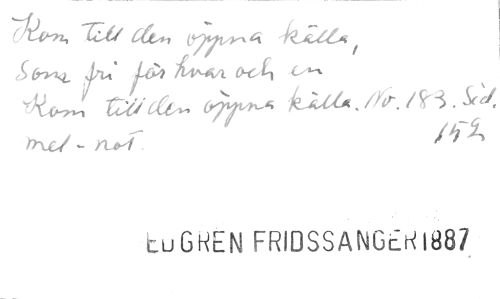 Kom till den öppna källa,
Som fri för hvar och en
Kom till den öppna källa. No. 183. Sid.
152
mel-not.
EDGREN FRIDSSANGER 1887